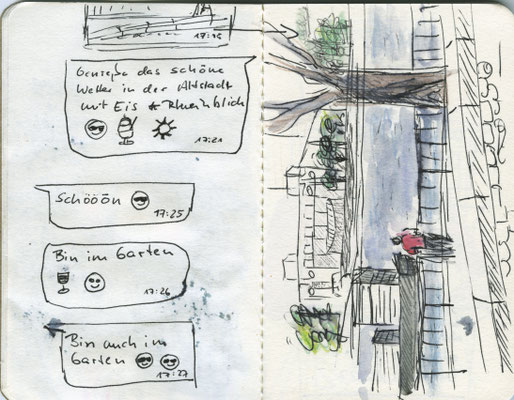 17:16
Genieße das schöne
Wetter in der Altstadt
mit Eis & Rheinblick
17:21
Schööön
17:25
Bin im Garten
17:26
Bin auch im
Garten
17:27